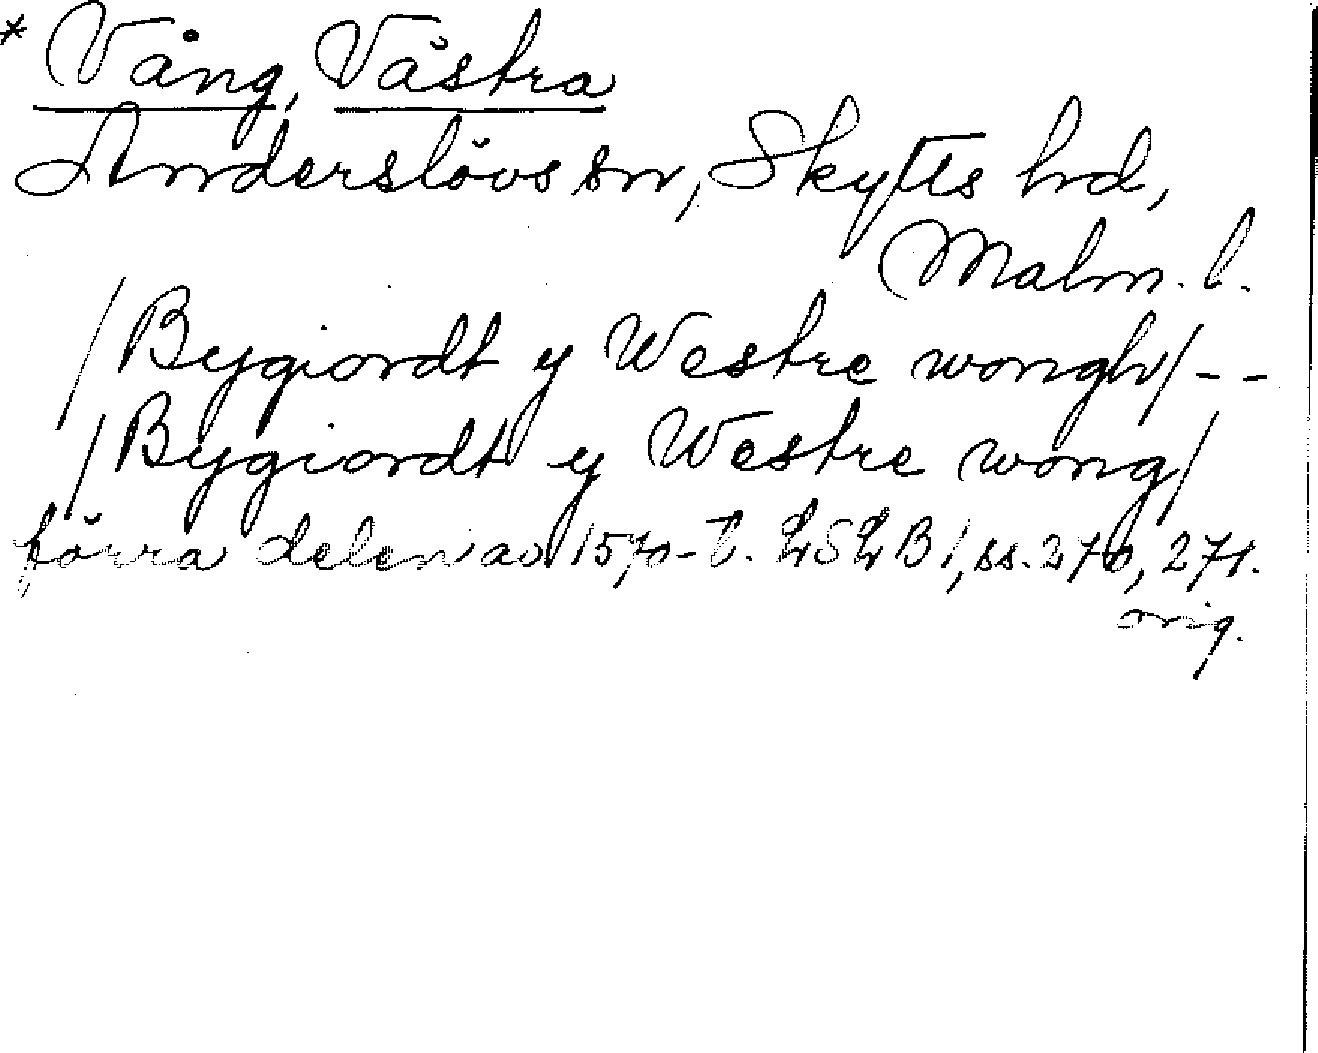 * Vång, Västra
Anderslövs sn, Skytts hd,
Malm. l.
/Bygiordt y Westre wongh/--
/Bygiordt y Westre wong/
förra delen av 1570-t. LSLB 1, ss. 270, 271.
orig.